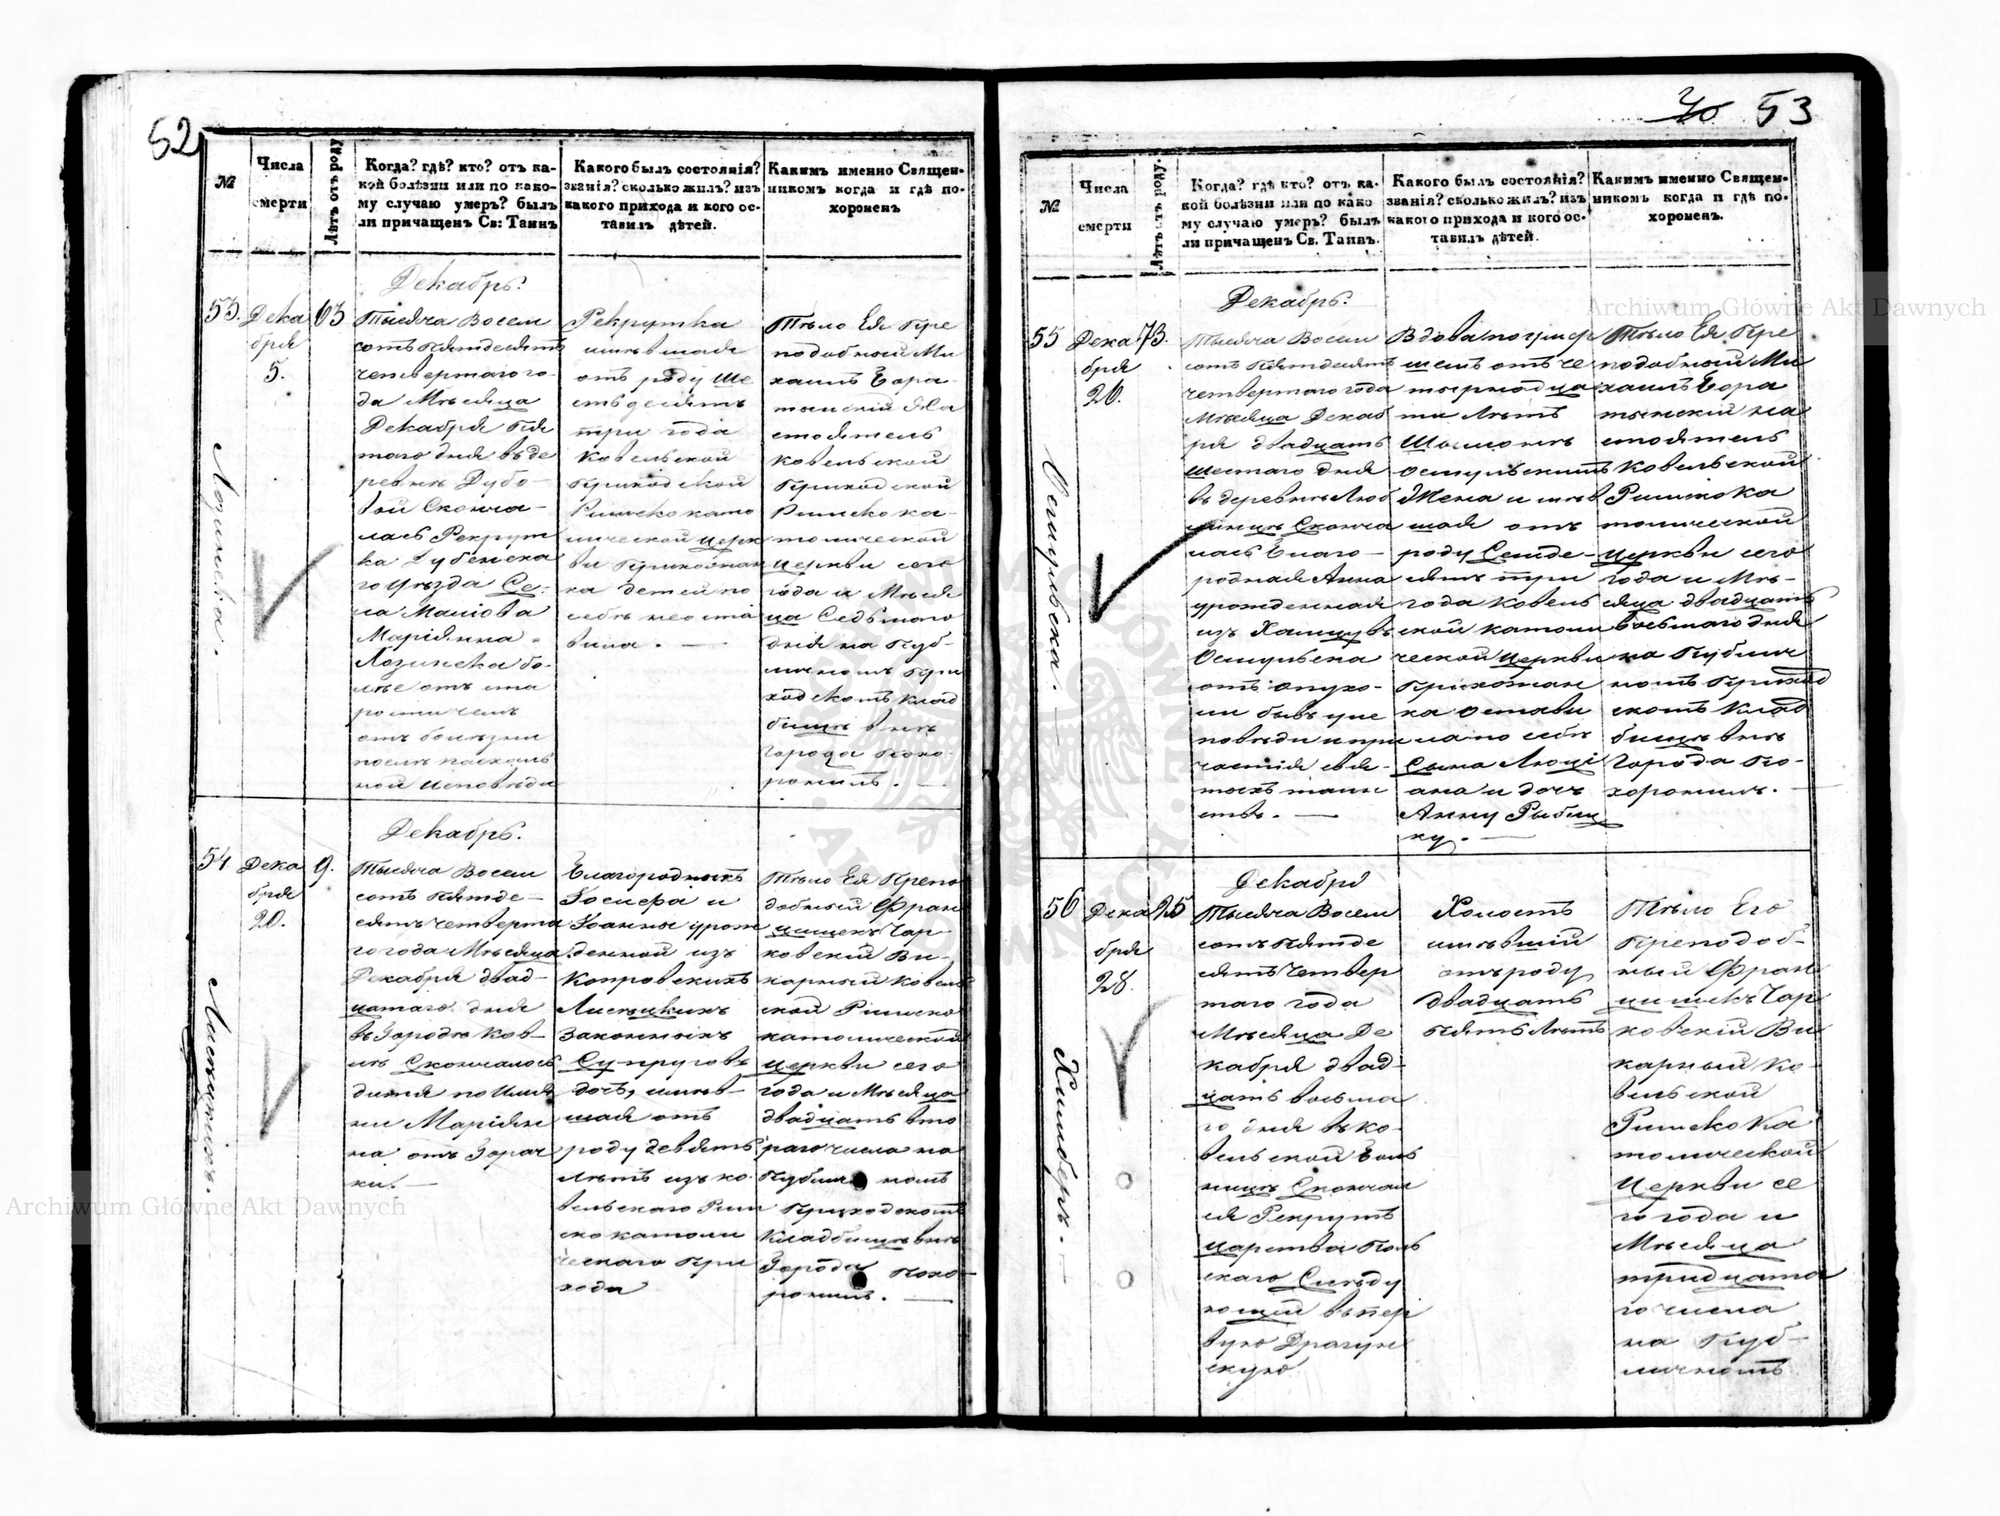 52
№
Числа
смерти
Лѣтъ отъ роду
Когда? гдѣ? кто? отъ ка-
кой болѣзни или по како-
му случаю умеръ? былъ
ли причащенъ Св: Таинъ
Какого былъ состоянія?
званія? сколько жилъ? изъ
какого прихода и кого ос-
тавилъ дѣтей.
Какимъ именно Священ-
никомъ когда и гдѣ по-
хороненъ
53.
Дека
бря
5.
63
Декабрь.
Тысяча Восем
сотъ пятдесятъ
четвертаго го-
да Мѣсяца
Декабря пя
таго дня въ де
ревнѣ Дубо-
вой Сконча-
лась Рекрут
ка Дубенска
го Уѣзда Се-
ла
Маріянна
Лозинска бо-
лѣе отъ ста
рости чемъ
отъ болезни
послѣ пасхаль
ной исповѣди
Рекрутка
имѣвшая
отъ роду Ше
стьдесятъ
три года
Ковельской
Приходской
Римскокато
лической Церк
ви Прихожан
ка детей по
себѣ не оста
вила. —
Тѣло Ея Пре
подобный Ми
хаилъ Бора
тынскій На
стоятель
Ковельской
Приходской
Римско ка-
толической
Церкви сего
года и Мѣся
ца Седьмого
дня на Пуб-
личномъ При
ходскомъ Клад
бищѣ внѣ
города Похо-
ронилъ. —
54
Дека
бря
20.
9.
Декабрь.
Тысяча Восем
сотъ пятде-
сятъ четверта
го года Мѣсяца
Декабря двад-
цатаго дня
въ Городѣ Ков-
лѣ Скончалось
дитя по Име
ни Маріян
на отъ Горяч
ки. —
Благородныхъ
Іосифа и
Іоанны урож
денной изъ
Копровскихъ
законныхъ
Супруговъ
дочь, имѣв-
шая отъ
роду девять
лѣтъ изъ Ко
вельскаго Рим
ско католи
ческаго При
хода
Тѣло Ея Препо
добный Фран
цишекъ Чар-
ковскій Ви-
карный Ковель
ской Римско
католической
Церкви сего
года и Мѣсяца
двадцать вто
раго числа на
Публичномъ
Приходскомъ
Кладбищѣ внѣ
Города Похо-
ронилъ. —
Archiwum Główne Akt Dawnych
53
№
Числа
смерти
Лѣтъ отъ роду.
Когда? гдѣ кто? отъ ка-
кой болѣзни или по како
му случаю умеръ? былъ
ли причащенъ Св. Таинъ.
Какого былъ состоянія?
званія? сколько жилъ? изъ
какого прихода и кого ос-
тавилъ дѣтей.
Какимъ именно Священ-
никомъ когда и гдѣ по-
хороненъ.
Archiwum Główne Akt Dawnych
55
Дека
бря
26.
73.
Декабрь.
Тысяча Восем
сотъ пятдесятъ
четвертаго года
Мѣсяца Декаб
ря двадцать
шестаго дня
въ деревнѣ Люб
Сконча
лась Благо-
родная Анна
урожденная
изъ
Осмульска
отъ опухо-
ли бывъ у ис
повѣди и при
частія свя-
тыхъ таин
ствъ. —
Вдова по
шемъ отъ че
тырнадца
ти Лѣтъ
Шимонѣ
Осмульскимъ
Жена имѣв
шая отъ
роду Семде-
сятъ три
года Ковель
ской католи
ческой Церкви
Прихожан
ка остави
ла по себѣ
Сына Люці
ана и дочь
Анну Рыбиц
ку. —
Тѣло Ея Пре
подобный Ми
хаилъ Бора
тынскій на
стоятель
Ковельской
Римско ка
толической
Церкви сего
года и Мѣ-
сяца двадцать
восьмаго дня
на Публич
номъ Приход
скомъ Клад
бищѣ внѣ
города По-
хоронилъ. —
56
Дека
бря
28.
25
Декабрь
Тысяча Восем
сотъ пятде
сятъ Четвер
таго года
Мѣсяца Де
кабря двад-
цать восьма
го дня в Ко-
вельской Боль
ницѣ Скончал
ся Рекрутъ
Царства Поль
скаго Слѣду
ющій въ пер
вую Драгун
скую
Холостъ
имѣвшій
отъ роду
двадцать
пять Лѣтъ
Тѣло Его
Преподоб-
ный Фран
цишекъ Чар
ковскій Ви
карный Ко-
вельской
Римско Ка
толической
Церкви се
го года и
Мѣсяца
тридцата
го числа
на Пуб-
личномъ